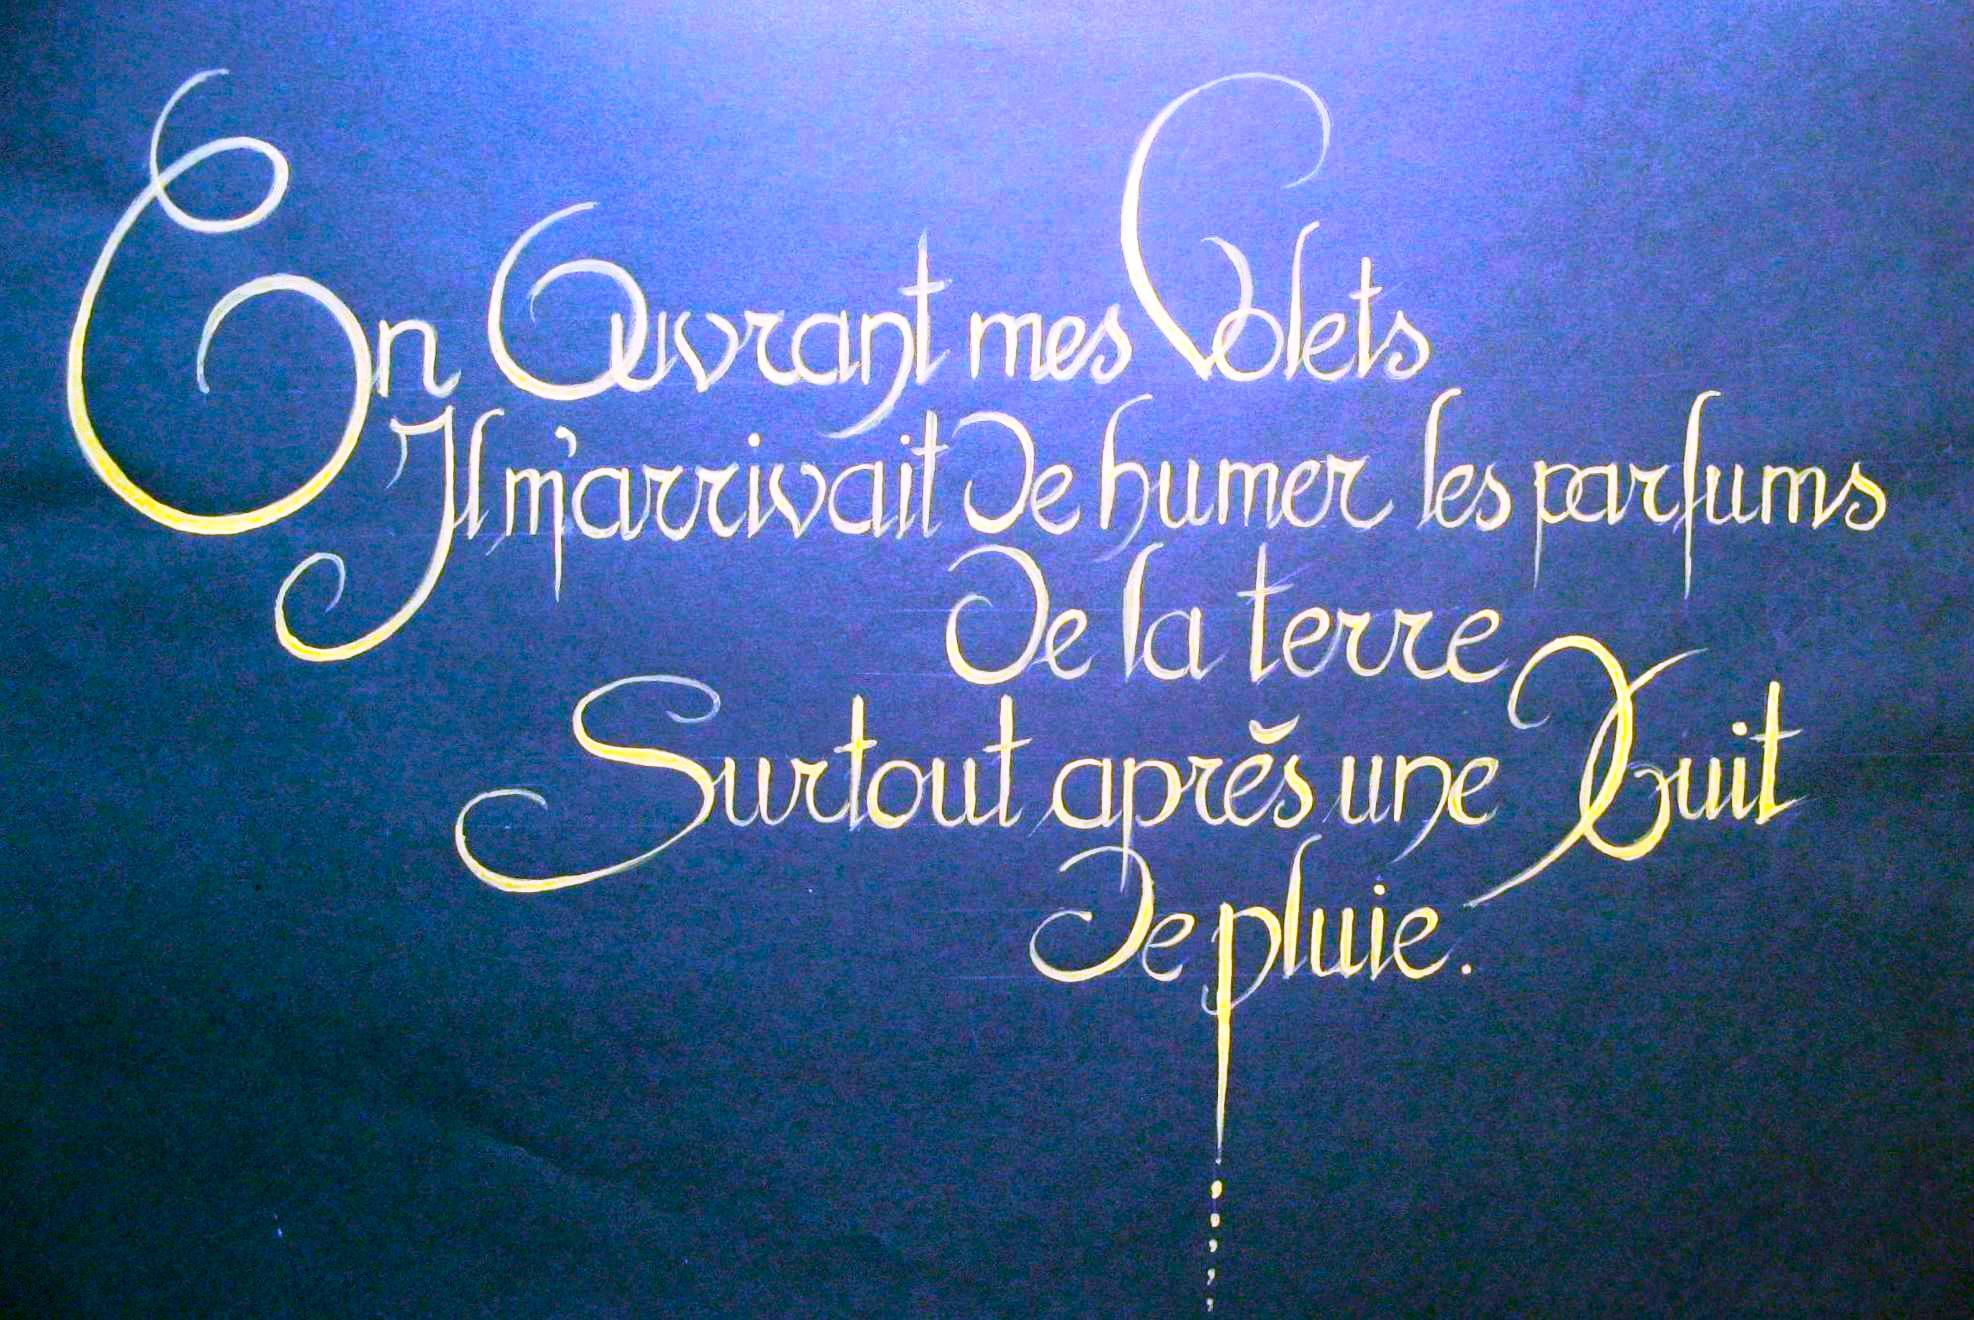 En Ouvrant mes Volets
Il m'arrivait De humer les parfums
De la terre
Surtout après une Nuit
De pluie.